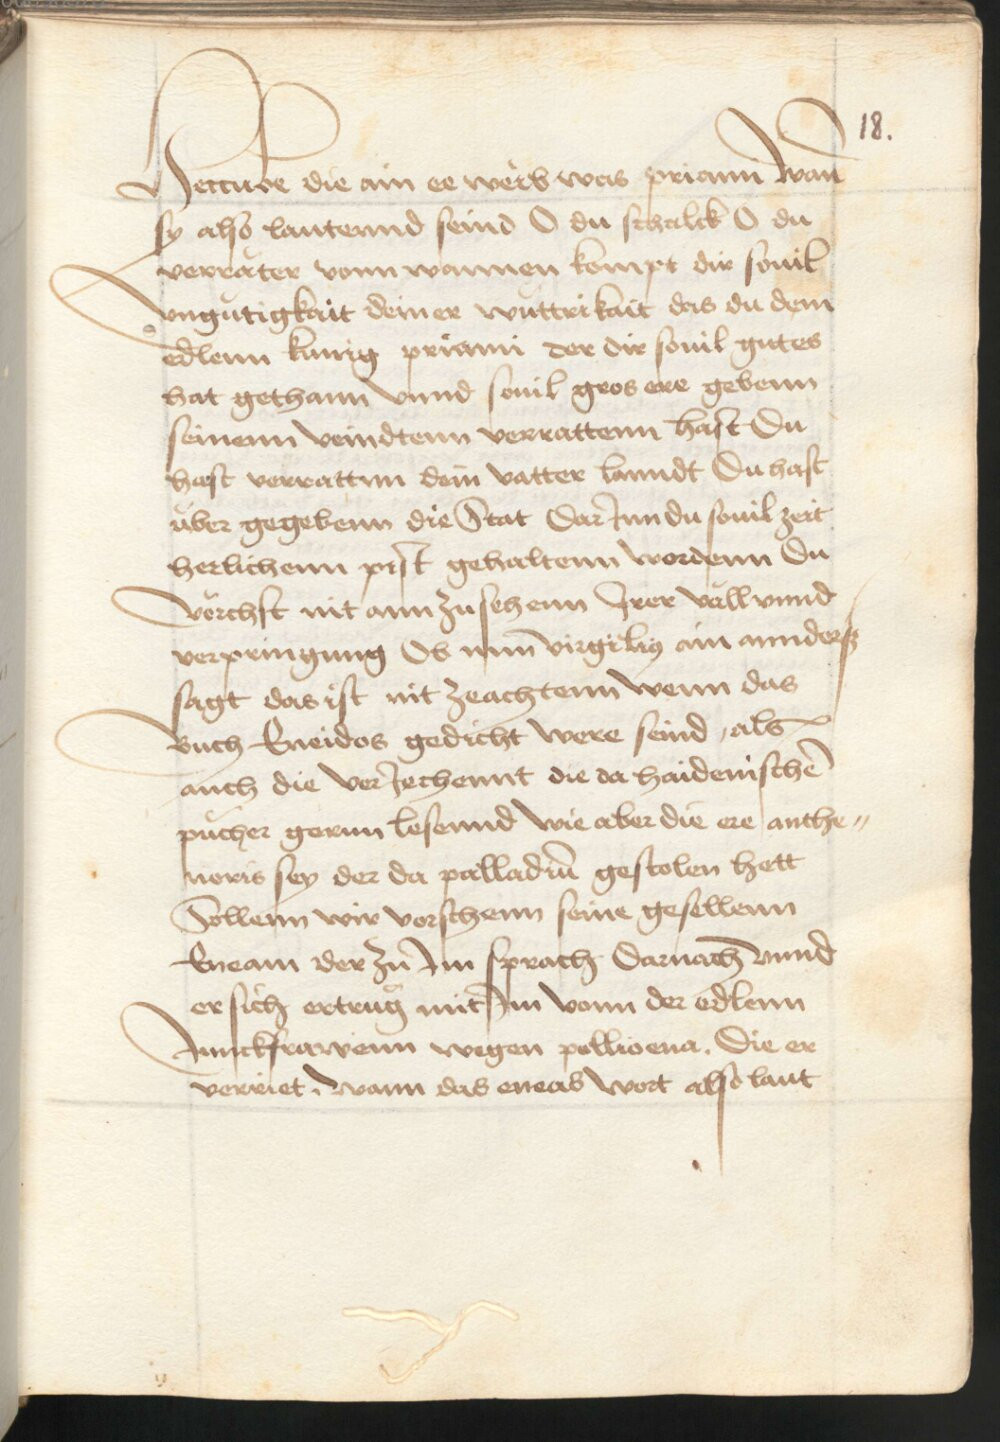 18.
Heccube die ain ee weib was priami Wan
sy also lautennd seind O du schalck O du
verräter vonn wannen kompt dir souil
vngütigkait deiner wüttrikait das du dem
edlenn kunig priami der dir souil gutes
hat gethann vnnd souil gros ere gebenn
seinenn veindtenn verrattenn hast Du
hast verrattnn dein vatter lanndt Du hast
über gegebenn die Stat Dar Jnn du souil zeit
herlichenn pist gehaltenn wordenn Du
vörchst nit ann zu sehenn Jrer väll vnnd
verpringung Ob nun virgilig ain annderß
sagt das ist nit ze achtenn wenn das
Buch Eneidos gedicht were seind als
auch die ver Jechennt die da haidenischē
pücher gernn lesennd Wie aber die ere anthe„
noris sey der da palladiū gestolen hett
Söllenn wir vorschenn seine gesellenn
Eneam der zu Jm sprach Darnach vnnd
er sich ertrug mit Jm vonn der edlenn
Junckfrawenn wegen pollixena. Die er
verriet. Wann das eneas Wort also laut